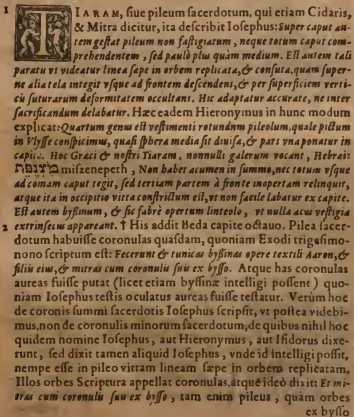 1 TIARAM, ſiue pileum ſacerdotum, qui etiam Cidaris,
& Mitra dicitur, ita deſcribit Ioſephus: Super caput au-
tem geſtat pileum non faſtigiatum, neque totum caput com-
prehendentem, ſed paulò plus quàm medium. Eſt autem tali
paratu vt videatur linea ſæpe in orbem replicata, & conſuta, quam ſuper-
ne alia tela integit vſque ad frontem deſcendens, & per ſuperficiem verti-
cis ſuturarum deformitatem occultans. Hic adaptatur accuratè, ne inter
ſacrificandum delabatur. Hæc eadem Hieronymus in hunc modum
explicat: Quartum genus eſt veſtimenti rotundum pileolum, quale pictum
in Vlyſſe conſpicimus, quaſi ſphæra media ſit diuiſa, & pars vna ponatur in
capite. Hoc Græci & noſtri Tiaram, nonnulli galerum vocant, Hebræi:
מצנפת miſzenepeth, Non habet acumen in ſummo, nec totum vſque
ad comam caput tegit, ſed tertiam partem à fronte inopertam relinquit,
atque ita in occipitio vitta conſtrictum eſt, vt non facilè labatur ex capite.
Eſt autem byßinum, & ſic fabrè opertum linteolo, vt nulla acus veſtigia
2 extrinſecus appareant. † His addit Beda capite octauo. Pilea ſacer-
dotum habuiſſe coronulas quaſdam, quoniam Exodi trigeſimo-
nono ſcriptum eſt: Fecerunt & tunicas byßinas opere textili Aaron, &
filiis eius, & mitras cum coronulis ſuis ex byſſo. Atque has coronulas
aureas fuiſſe putat (licet etiam byſſinæ intelligi poſſent) quo-
niam Ioſephus teſtis oculatus aureas fuiſſe teſtatur. Verùm hoc
de coronis ſummi ſacerdotis Ioſephus ſcripſit, vt poſtea videbi-
mus, non de coronulis minorum ſacerdotum, de quibus nihil hoc
quidem nomine Ioſephus, aut Hieronymus, aut Iſidorus dixe-
runt, ſed dixit tamen aliquid Ioſephus, vnde id intelligi poſſit,
nempe eſſe in pileo vittam lineam ſæpe in orbem replicatam.
Illos orbes Scriptura appellat coronulas, atque ideò dixit: Et mi-
tras cum coronulis ſuis ex byſſo, tam enim pileus, quàm orbes
ex byſſo